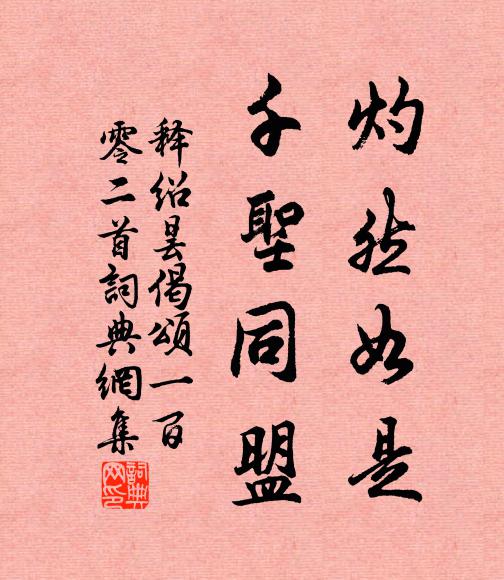 灼然如是
千聖同盟
释绍昙偈頌一百
零二首詞典網集
詞典网印